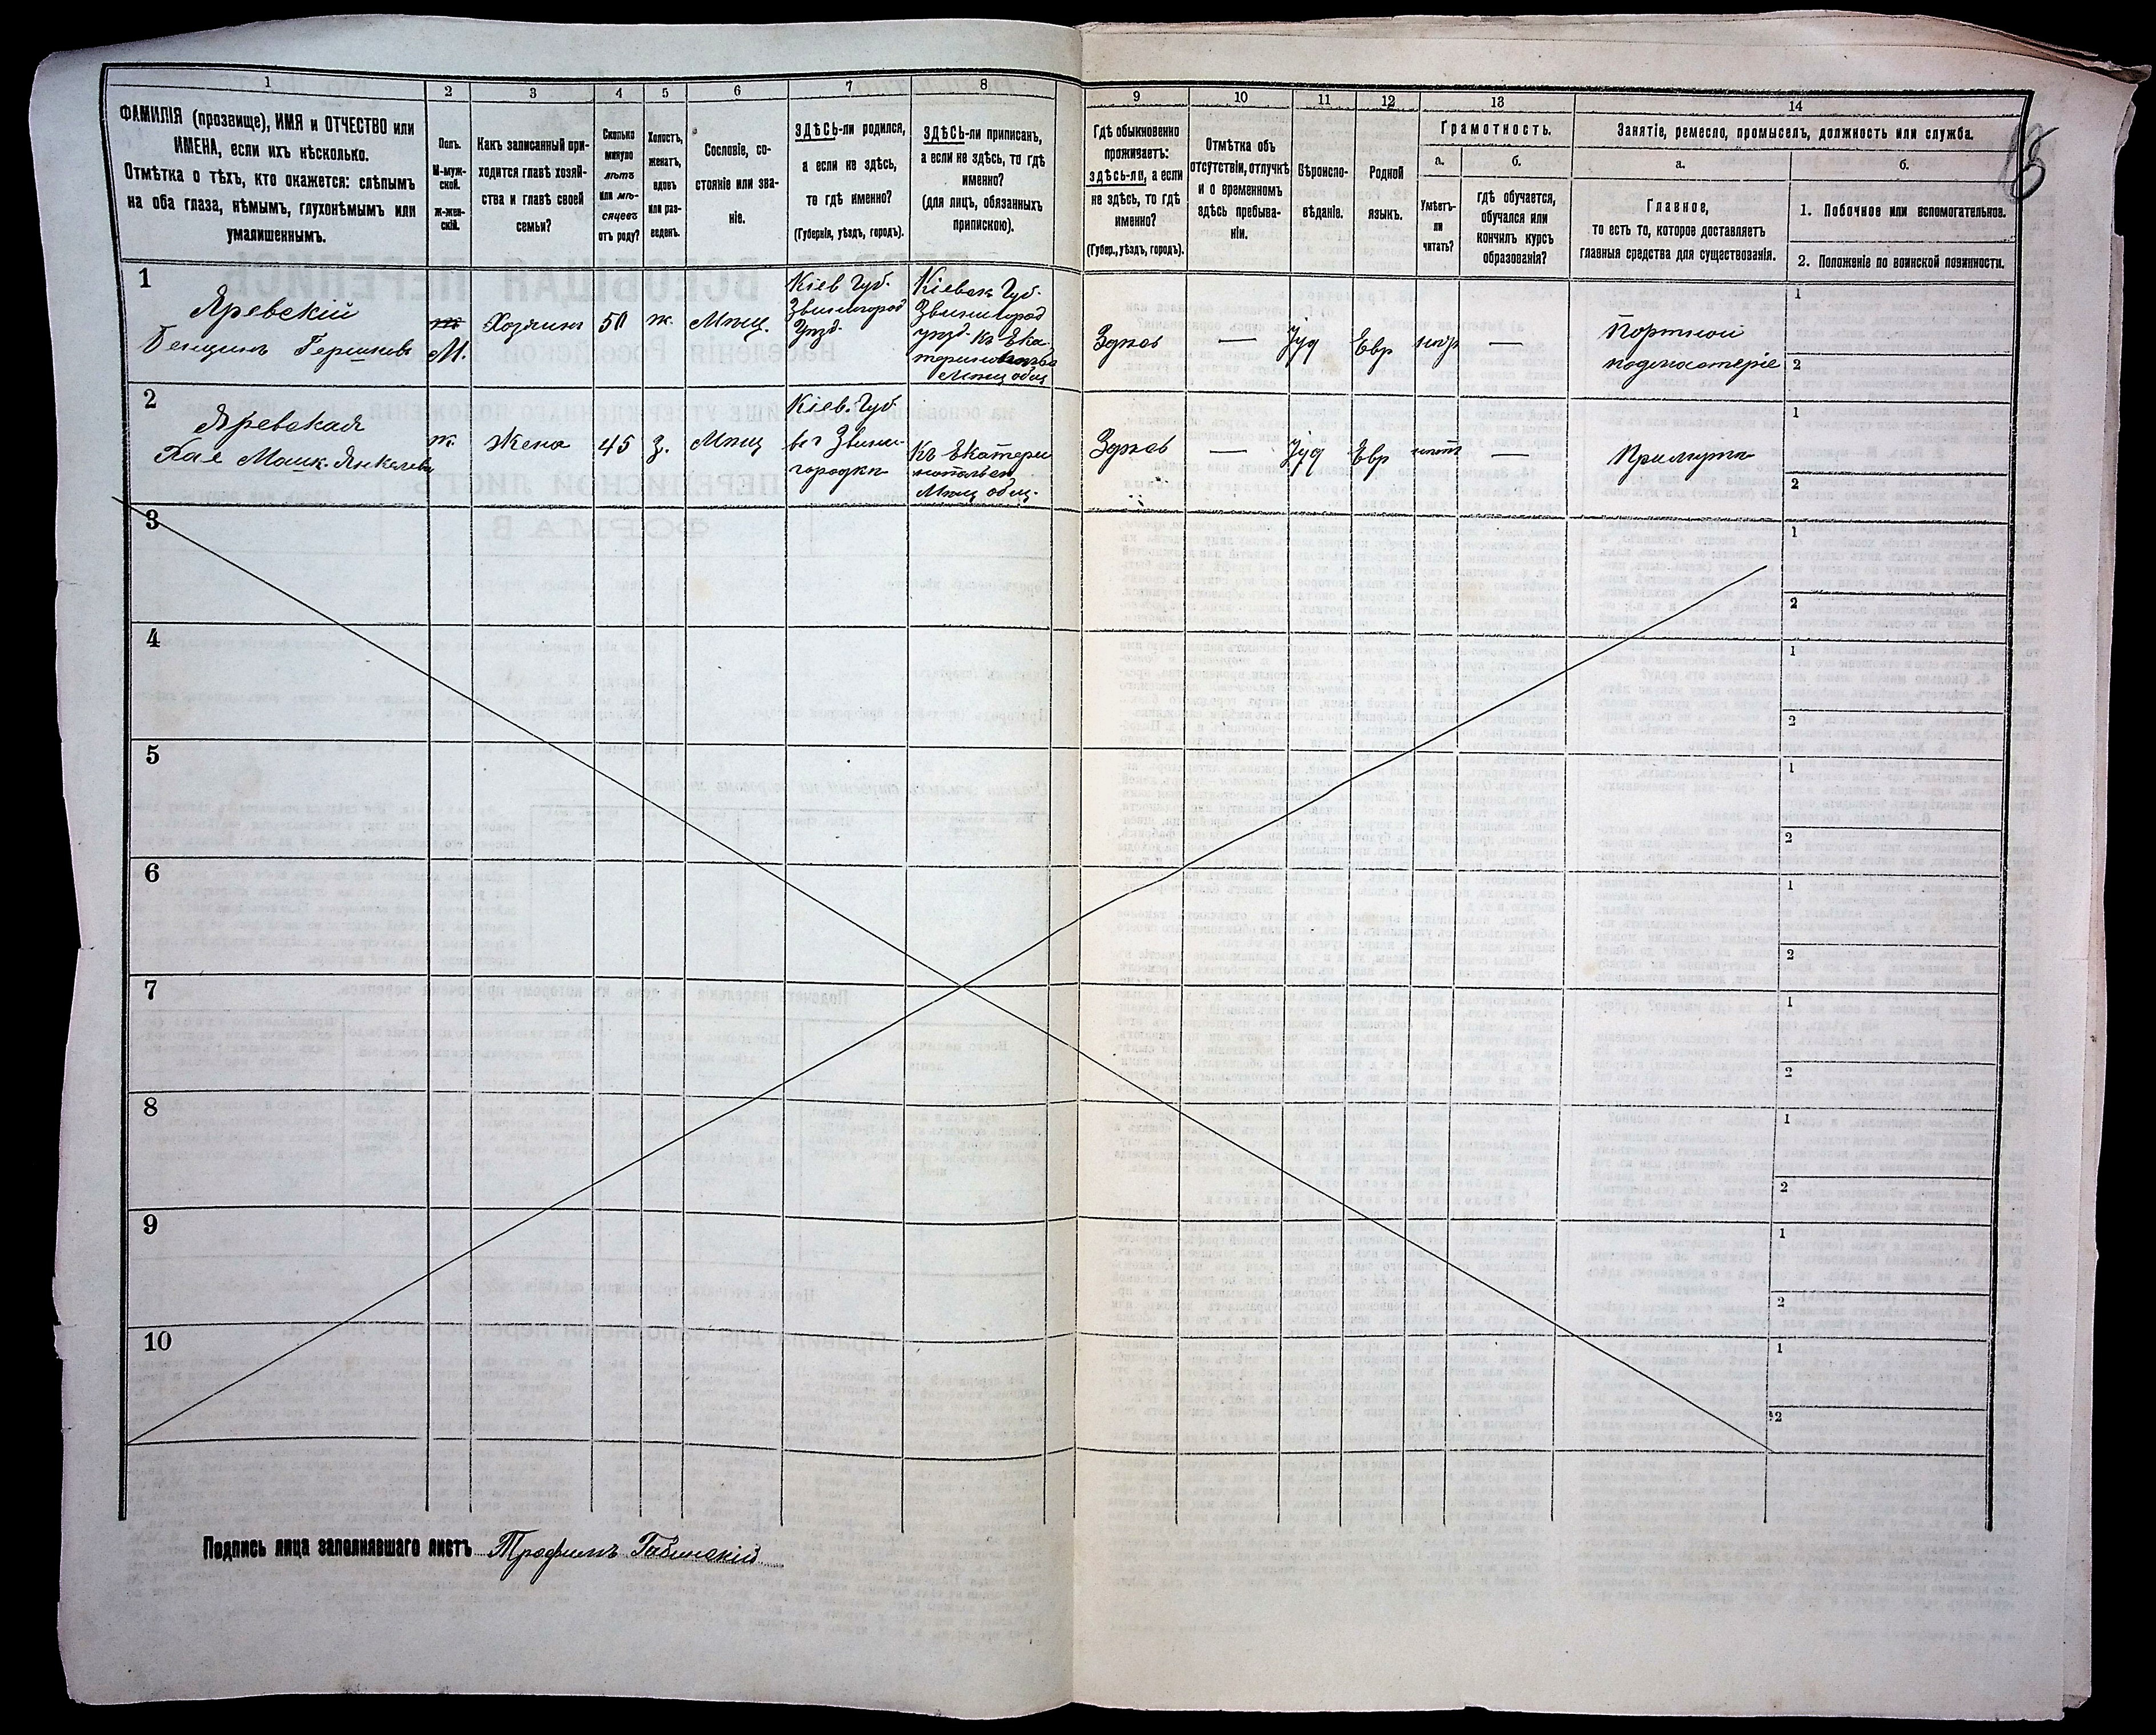 1 2 3 4 5 6 7 8 9 10 11 12 13 14
ФАМИЛІЯ (прозвище), ИМЯ и ОТЧЕСТВО или
ИМЕНА, если ихъ нѣсколько.
Отмѣтка о тѣхъ, кто окажется: слѣпымъ
на оба глаза, нѣмымъ, глухонѣмымъ или
умалишеннымъ.
Полъ.
М-муж-
ской.
Ж-жен-
скій.
Какъ записанный при-
ходится главѣ хозяй-
ства и главѣ своей
семьи?
Сколько
минуло
лѣтъ
или мѣ-
сяцевъ
отъ роду?
Холостъ,
женатъ,
вдовъ
или раз-
веденъ.
Сословіе, со-
стояніе или зва-
ніе.
ЗДѢСЬ-ли родился,
а если не здѣсь,
то гдѣ именно?
(Губернія, уѣздъ, городъ).
ЗДѢСЬ-ли приписанъ,
а если не здѣсь, то гдѣ
именно?
(для лицъ, обязанныхъ
припискою).
Гдѣ обыкновенно
проживаетъ:
здѣсь-ли, а если
не здѣсь, то гдѣ
именно?
(Губер., уѣздъ, городъ).
Отмѣтка объ
отсутствіи, отлучкѣ
и о временномъ
здѣсь пребыва-
ніи.
Вѣроиспо-
вѣданіе.
Родной
языкъ.
Грамотность.
а. б.
Умѣетъ-
ли
читать?
гдѣ обучается,
обучался или
кончилъ курсъ
образованія?
Занятіе, ремесло, промыселъ, должность или служба.
а. б.
Главное,
то есть то, которое доставляетъ
главныя средства для существованія.
1. Побочное или вспомогательное.
2. Положеніе по воинской повинности.
1
Яревскій
Гершковъ
М.
Хозяинъ
50
ж.
Мѣщ.
Кіев Губ.
Звенигород
Уѣзд.
Кіевск Губ.
Звенигород
уѣзд. къ Ека-
Мѣщ общ
Здѣсь
—
Іуд
Евр
—
Портной
подмастеріе
1
2
2
Яревская
Хая Янкелева
ж.
Жена
45
з.
Мѣщ
Кіев. Губ
въ г Звени-
городкѣ
къ Екатери
Мѣщ общ.
Здѣсь
—
Іуд
Евр
нѣтъ
—
При мужѣ
1
2
3
1
2
4
1
2
5
1
2
6
1
2
7
1
2
8
1
2
9
1
2
10
1
2
Подпись лица заполнявшаго листъ Трофимъ Гобинскій